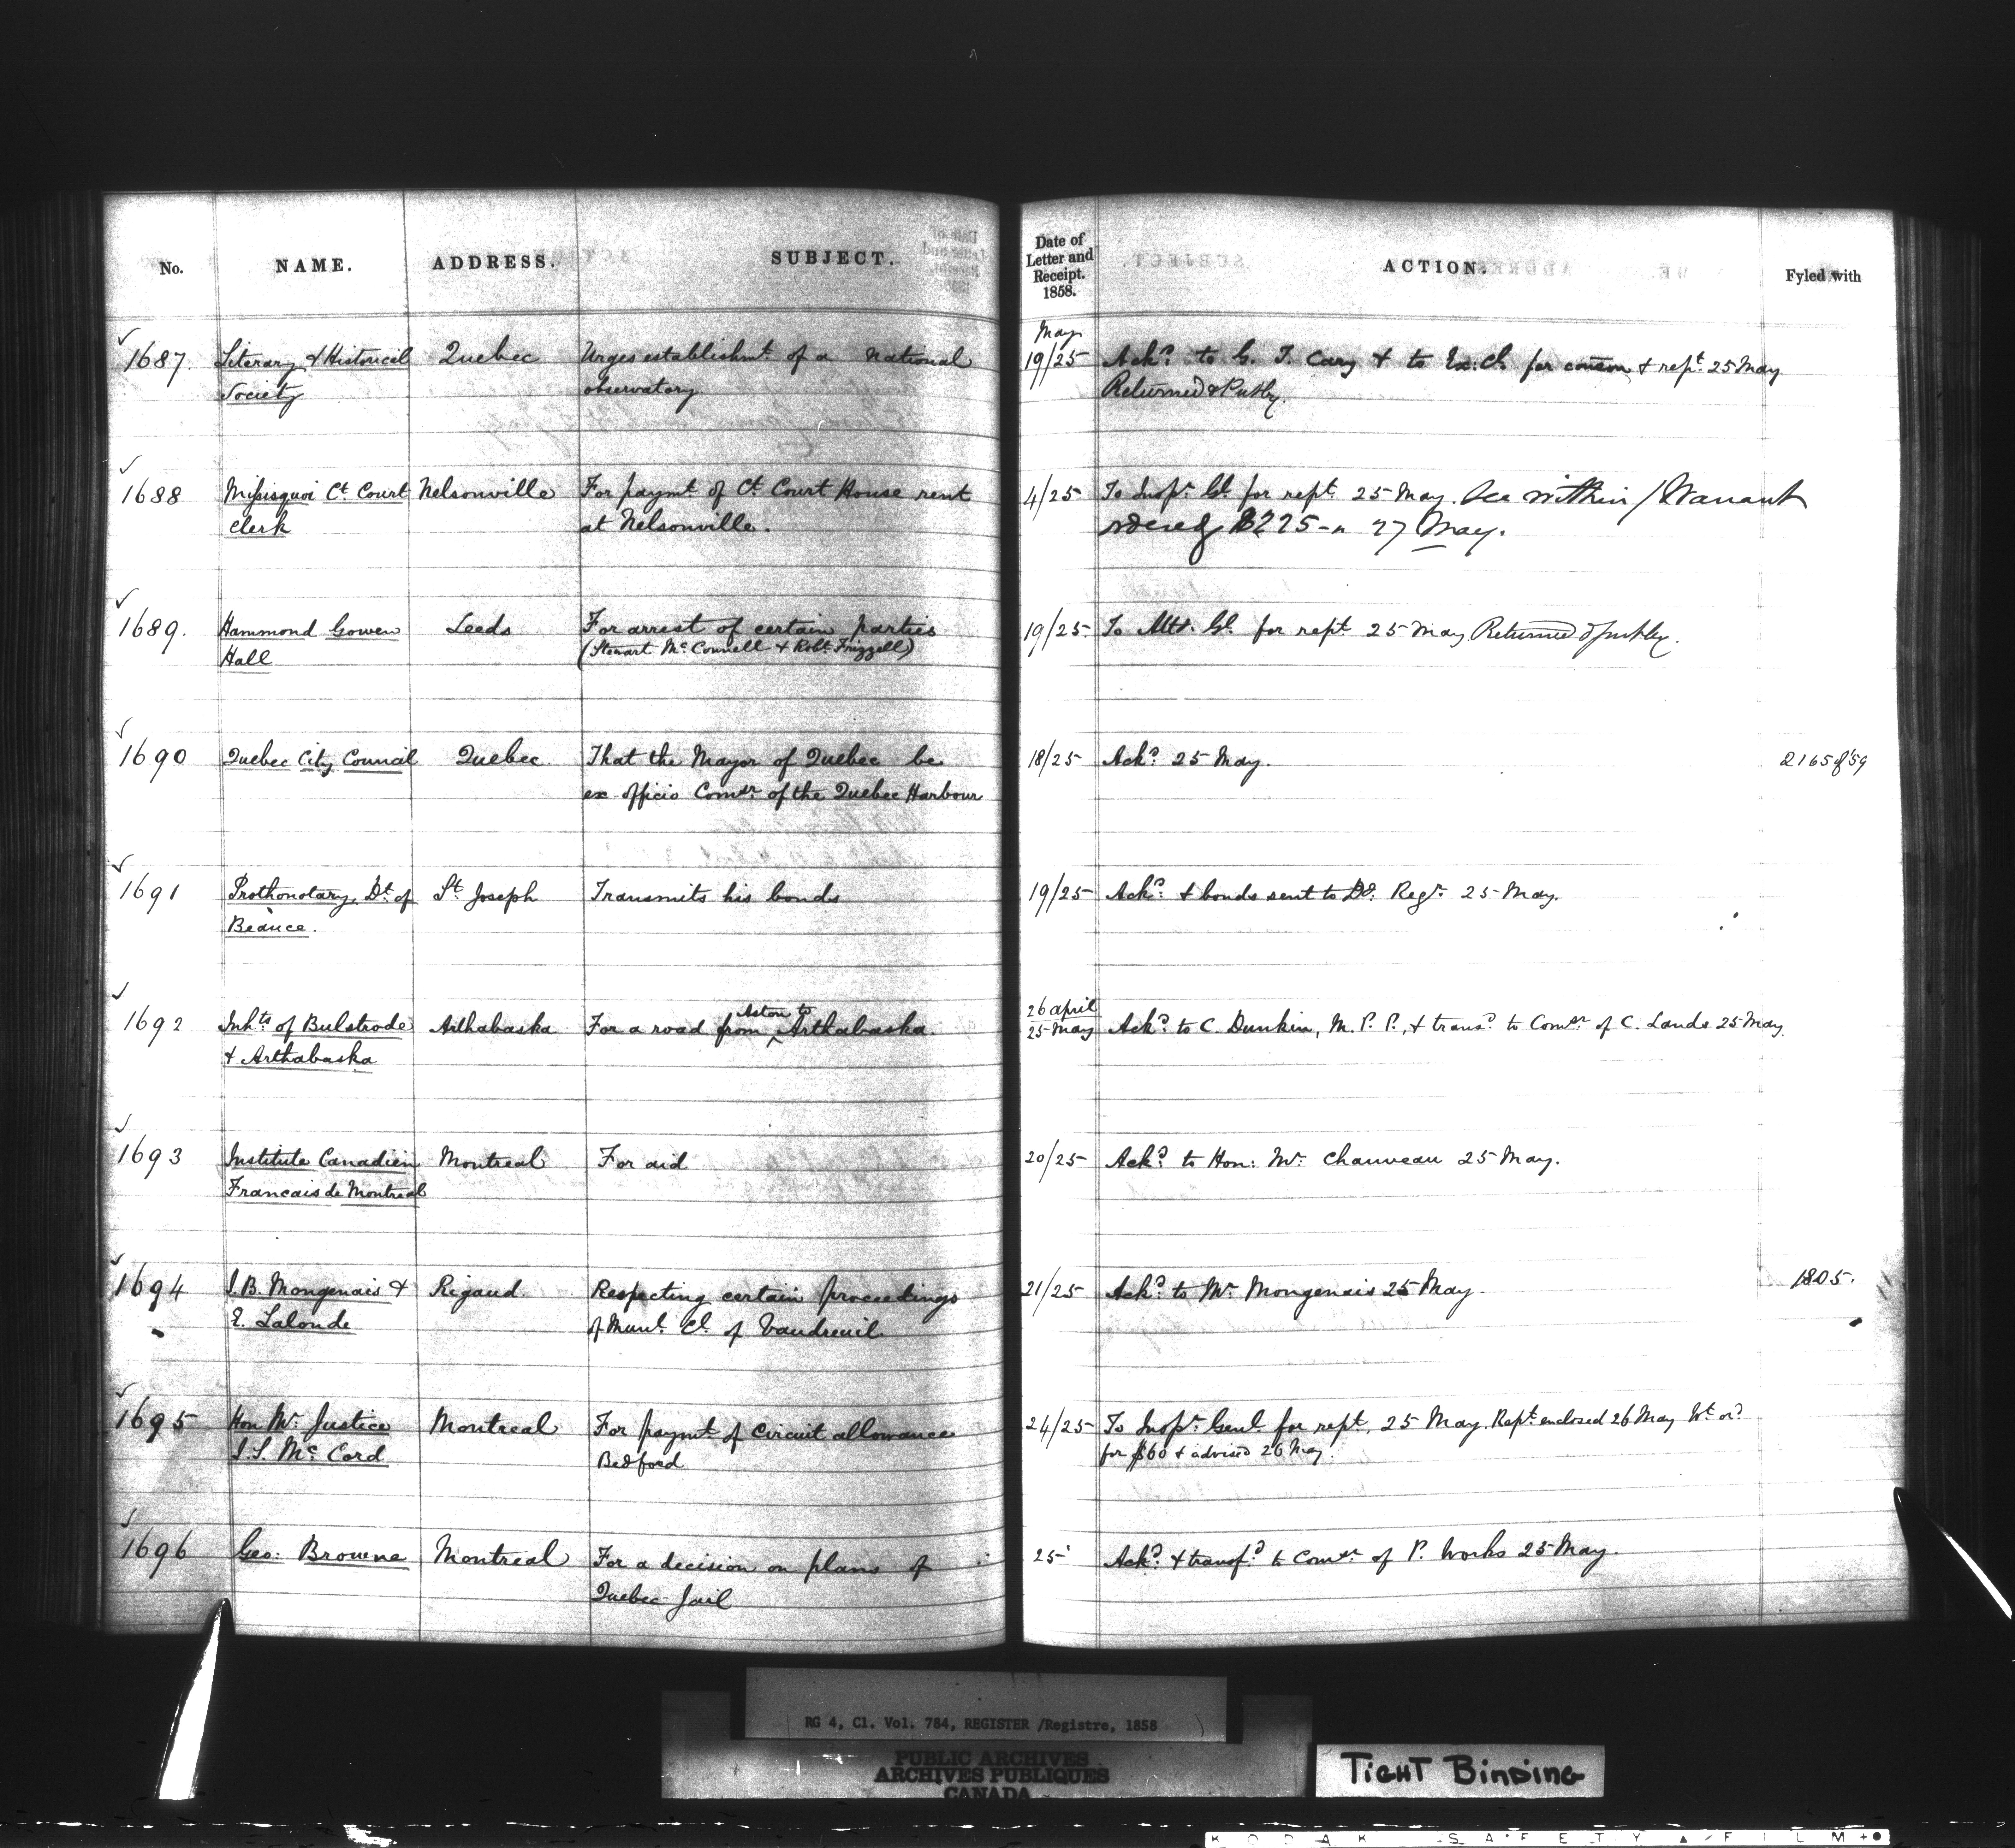 No. NAME. ADDRESS. SUBJECT. Date of Letter and Receipt. 1858. ACTION. Fyled with
May
1687. Literary & Historical Quebec Urges establishmt. of a National 19/25 Ackd. to G. T. Cary & to Ex: Cl. for conson & rept. 25 May
Society observatory Returned & Putby.
1688 Missisquoi Ct. Court Nelsonville For paymt. of Ct. Court House rent 4/25 To Inspr. Gl. for rept. 25 May. See within / Warrant
Clerk at Nelsonville. ordered $225 27 May.
1689. Hammond Gowen Leeds For arrest of certain parties 19/25. To Atty. Gl. for rept. 25 May Returned & putby.
Hall (Stewart McConnell & Robt. Frizzell)
1690 Quebec City Council Quebec That the Mayor of Quebec be 18/25 Ackd. 25 May. 2165 of '59
ex officio Comsr. of the Quebec Harbour
1691 Prothonotary, Dt. of St. Joseph Transmits his bonds 19/25 Ackd. & bonds sent to Regr. 25 May.
Beauce.
Aston to 26 april
1692 Inhts. of Bulstrode Arthabaska For a road from Arthabaska 25 May Ackd. to C. Dunkin, M. P. P., & transd. to Comsr. of C. Lands 25 May.
& Arthabaska
1693 Institute Canadien Montreal For aid 20/25 Ackd. to Hon: Mr. Chauveau 25 May.
Francais de Montreal
1694 J. B. Mongenais & Rigaud. Respecting certain proceedings 21/25 Ackd. to Mr. Mongenais 25 May. 1805.
E. Lalonde of Munl. Cl. of Vaudreuil.
1695 Hon Mr. Justice Montreal For paymt. of Circuit allowance 24/25 To Inspr. Genl. for rept. 25 May Rept. enclosed 26 May Wt. ord.
J. S. McCord Bedford for $60 & advised 26 May.
1696 Geo: Browne Montreal For a decision on plans of 25 Ackd. & transfd. to Comsr. of P. Works 25 May.
Quebec Jail
RG 4, Cl. Vol. 784, REGISTER /Registre, 1858
PUBLIC ARCHIVES
ARCHIVES PUBLIQUES
CANADA
TIGHT BINDING
KODAK SAFETY FILM